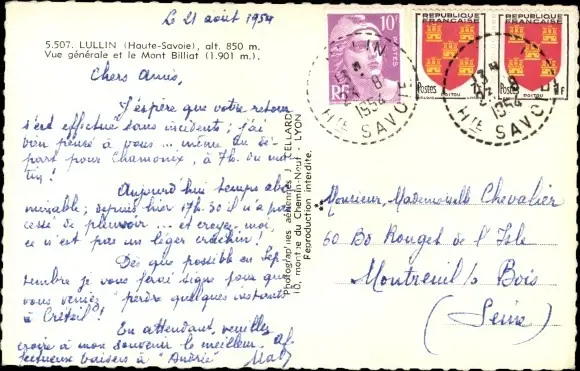 Le 21 août 1954
5.507. LULLIN (Haute-Savoie), alt. 850 m.
Vue générale et le Mont Billiat (1.901 m.).
Chers Amis,
J'espère que votre retour
s'est effectué sans incidents; j'ai
bien pensé à vous ... même au dé-
part pour Chamonix, à 7h. du ma-
tin!
Aujourd'hui temps abo-
minable; depuis hier 17h.30 il n'a pas
cessé de pleuvoir ... et croyez-moi,
ce n'est pas un léger crachin!
Dès que possible en Sep-
tembre je vous ferai signe pour que
vous veniez "perdre quelques instants"
à Créteil!
En attendant, veuillez
croire à mon souvenir le meilleur. Af-
fectueux baisers à "Andrée"
Photographies aériennes J. CELLARD
montée du Chemin-Neuf - LYON
Reproduction interdite.
10F
POSTES
RF
REPUBLIQUE FRANÇAISE
Postes
POITOU
REPUBLIQUE FRANÇAISE
Postes
POITOU
LULLIN
1954
HTE SAVOIE
1954
HTE SAVOIE
Monsieur, Mademoiselle Chevalier
60 Bd Rouget de l'Isle
Montreuil s/s Bois
(Seine)